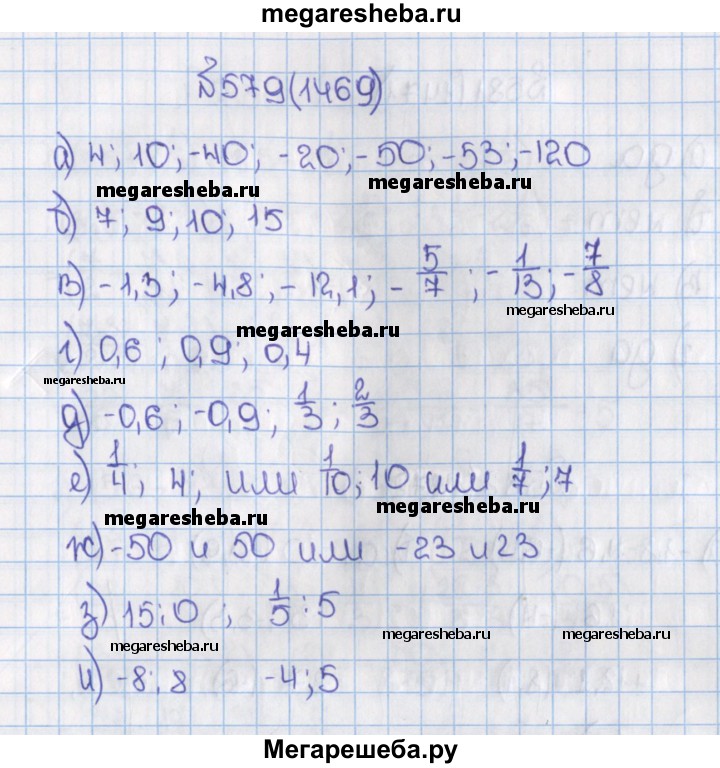 megaresheba.ru
№579(1469)
а) 4; 10; -40; -20; -50; -53; -120
megaresheba.ru megaresheba.ru
б) 7; 9; 10; 15
в) -1,3; -4,8; -12,1; -5/7; -1/13; -7/8
megaresheba.ru
megaresheba.ru
г) 0,6; 0,9; 0,4
megaresheba.ru
д) -0,6; -0,9; 1/3; 2/3
е) 1/4; 4; или 1/10; 10 или 1/7; 7
megaresheba.ru megaresheba.ru
ж) -50 и 50 или -23 и 23
з) 15; 0; 1/5 : 5
megaresheba.ru megaresheba.ru megaresheba.ru
и) -8; 8 -4; 5
Мегарешеба.ру